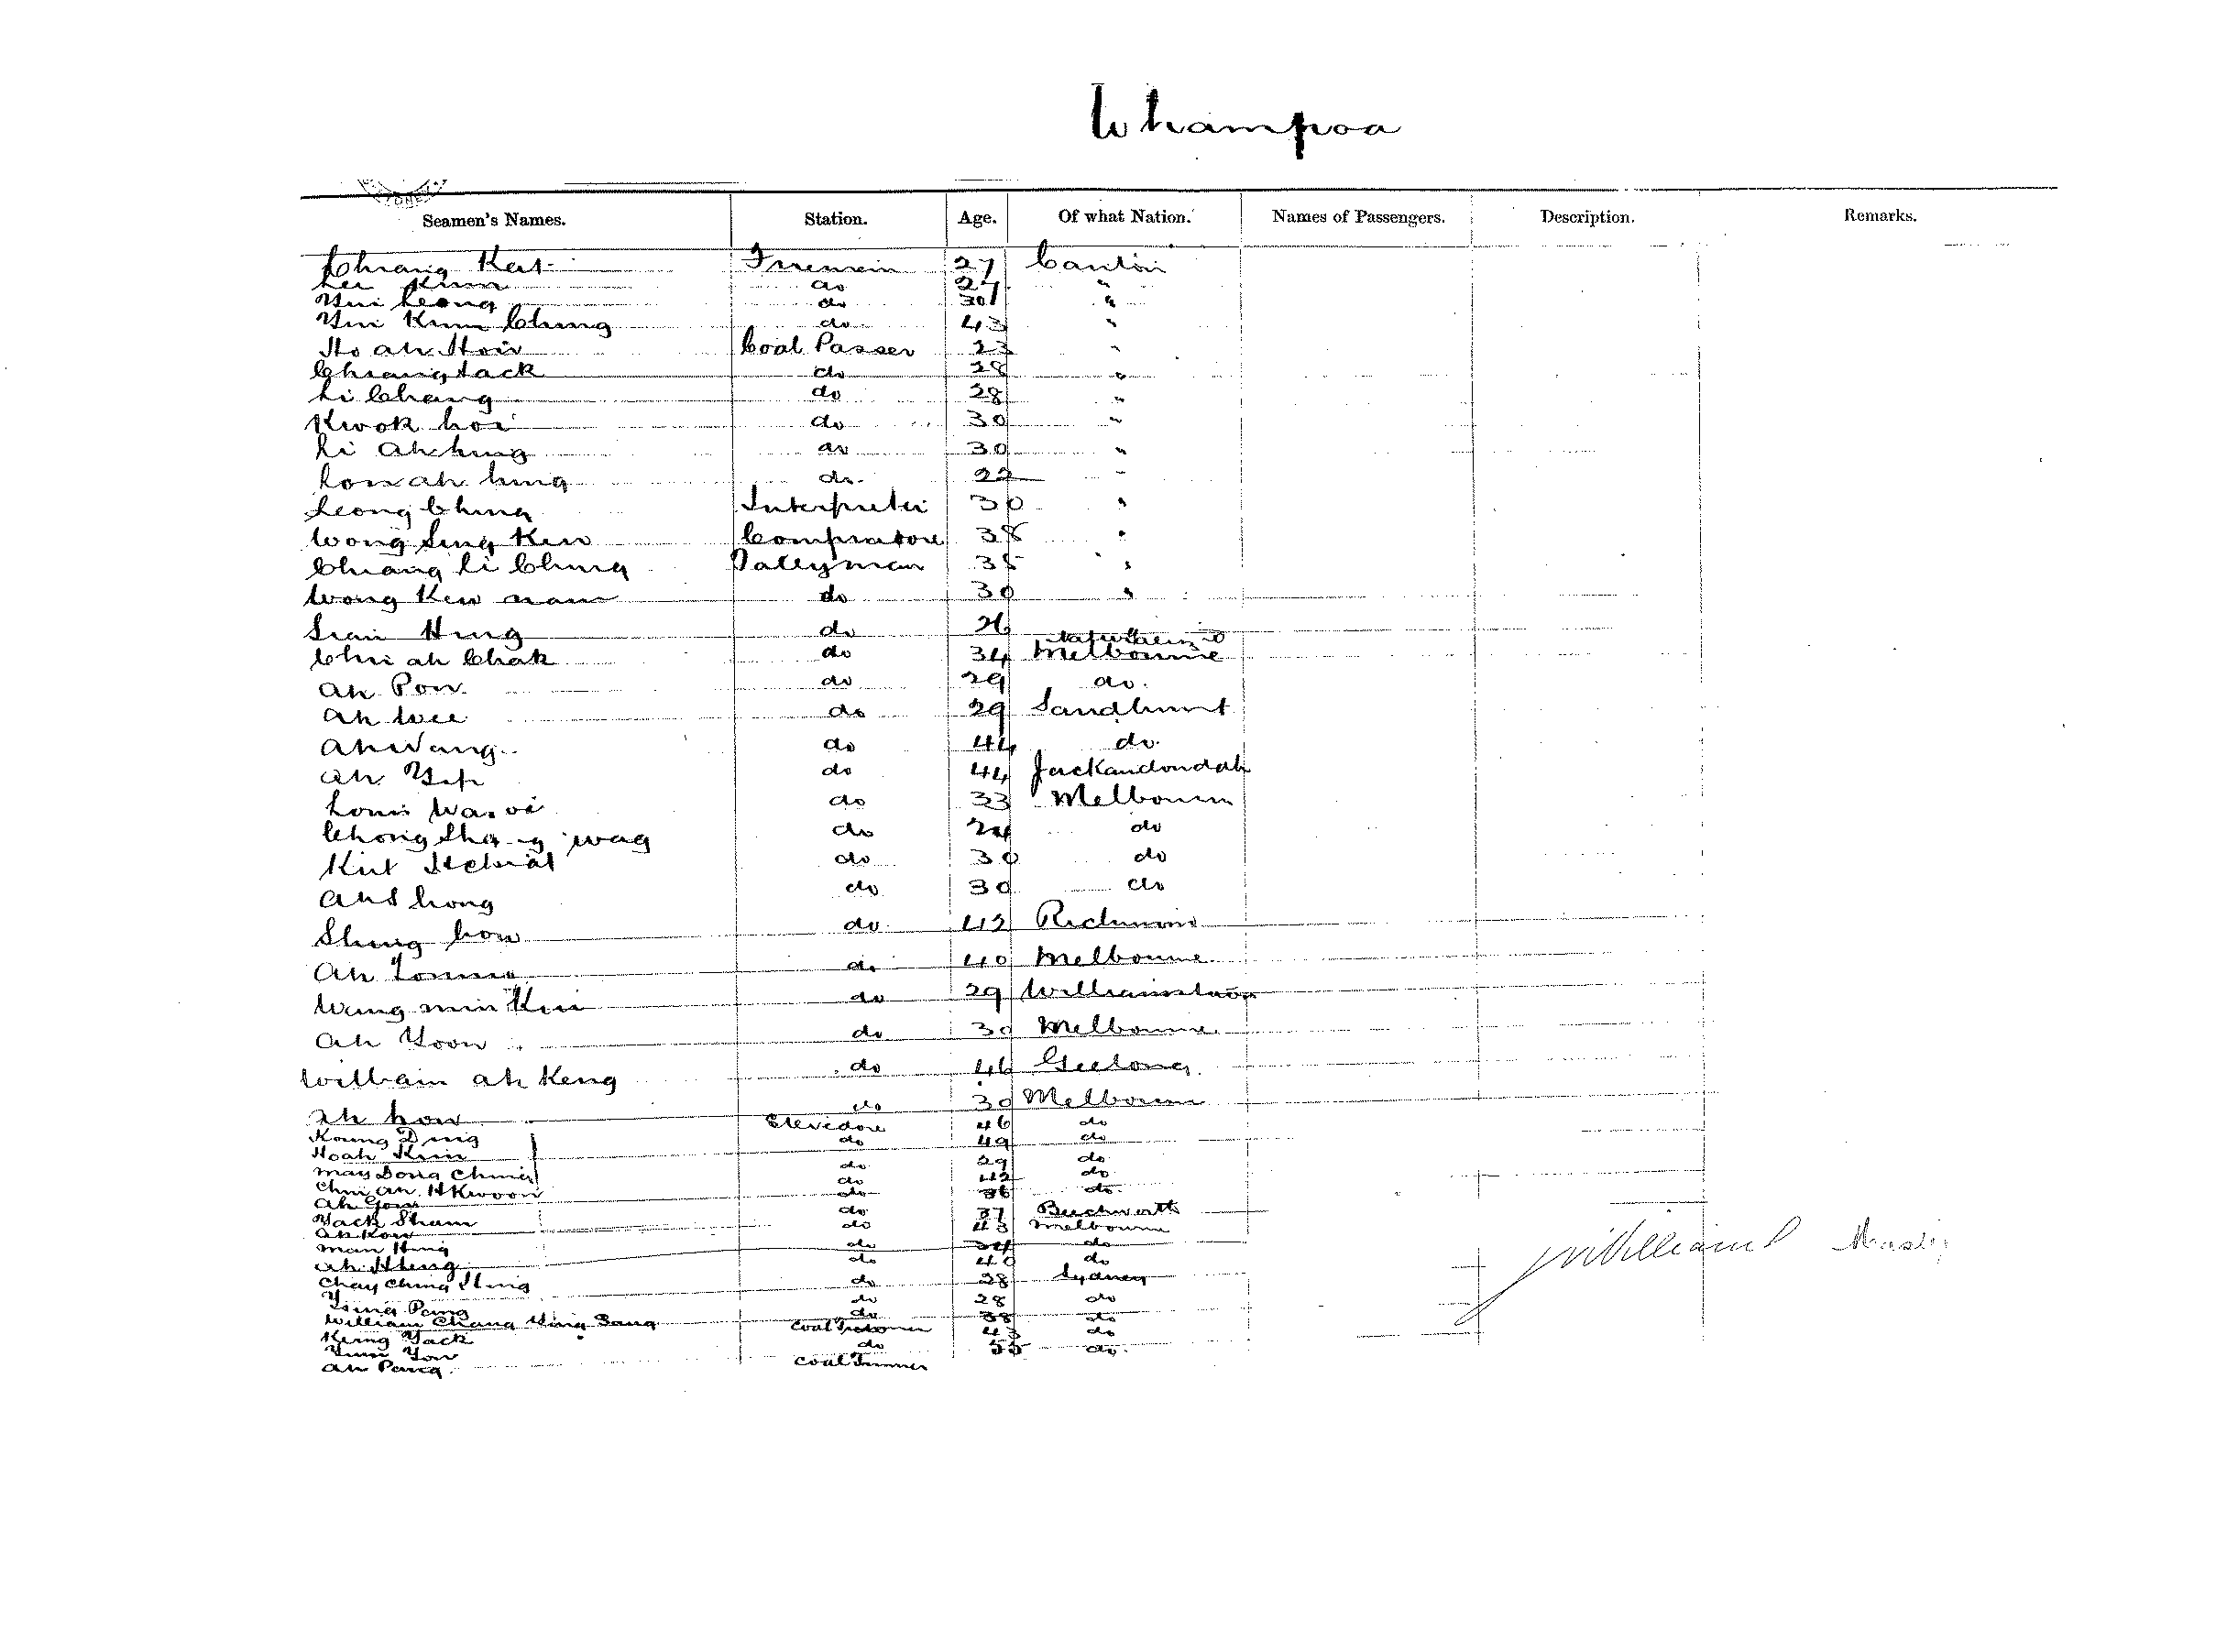 Whampoa
Seamen's Names. Station. Age. Of what Nation. Names of Passengers. Description. Remarks.
Chiang Kat Fireman 27 Canton
Lei Kum do 27 "
Yui Leong do 30 "
Yui Kum Chung do 43 "
Ho ah Hoi Coal Passer 23 "
Chiang Tack do 28 "
Li Chang do 28 "
Kwok Loi do 30 "
Li Ah hing do 30 "
Low ah hing do 22 "
Leong Ching Interpreter 30 "
Wong Sing Kew Compradore 38 "
Chiang Li Ching Tallyman 35 "
Wong Kew nam do 30 "
Hing do 26
Naturalized
Chu ah Chak do 34 Melbourne
Ah Pow do 29 do.
Ah Wee do 29 Sandhurst
Ah Wang do 44 do.
Ah Yep do 44 Jackandondah
do 33 Melbourne
Chong wag do 24 do
do 30 do
do 30 do
Shing how do 42 Richmond
Ah Tommy do 40 Melbourne
Wang min Kee do 29 Williamstown
Ah Yoon do 30 Melbourne
William ah Keng do 46 Geelong
Ah how do 30 Melbourne
Koung Ding Stevedore 46 do
Hoah Kim do 49 do
May Dong Ching do 29 do
Chu ah Kwoon do 42 do
Ah Gow do 36 do
Yack Sham do 37 Beechworth
Ah Kow do 43 Melbourne
Man Hing do 34 do
Ah Heng do 40 do
Chay Ching Hing do 28 Sydney
Ting Pang do 28 do
William Chang Hing Dang do 38 do
King Yack Coal Trimmer 43 do
Yow do 55 do.
Ah Pang Coal Trimmer
Williams Master